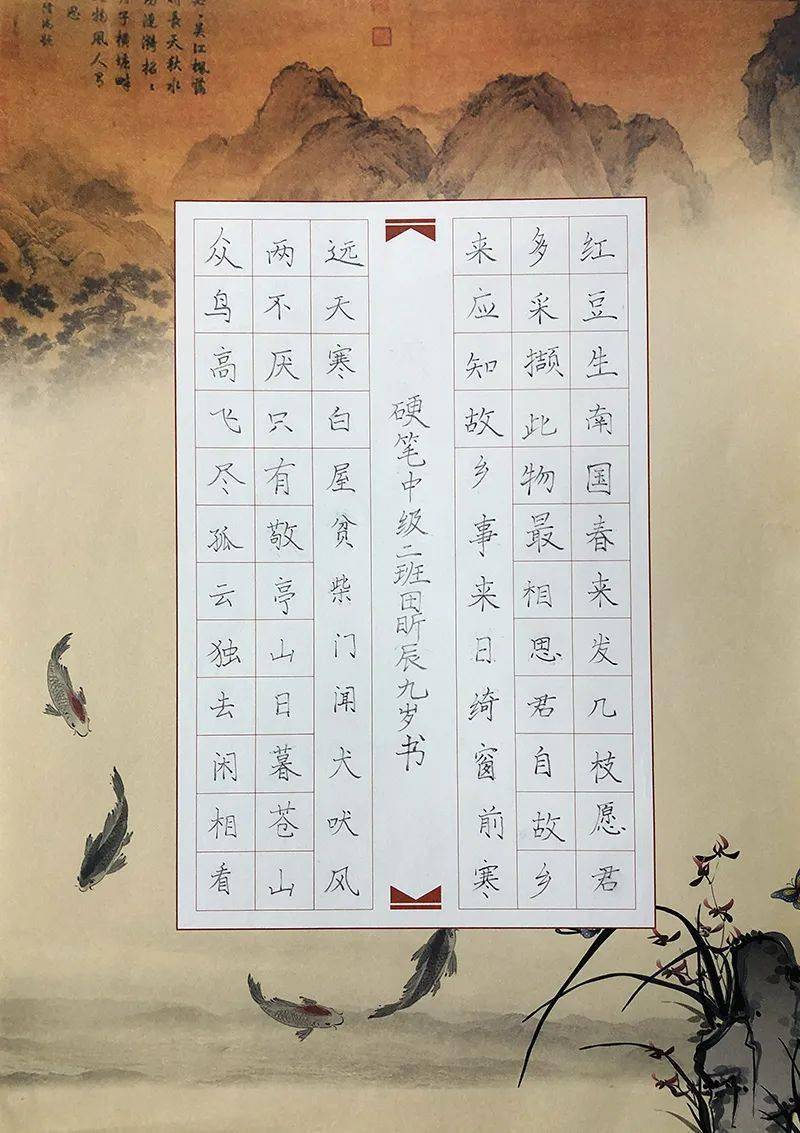 红豆生南国春来发几枝愿君
多采撷此物最相思君自故乡
来应知故乡事来日绮窗前寒
硬笔中级二班田昕辰九岁书
众鸟高飞尽孤云独去闲相看
两不厌只有敬亭山日暮苍山
远天寒白屋贫柴门闻犬吠风
吴江枫落
长天秋水